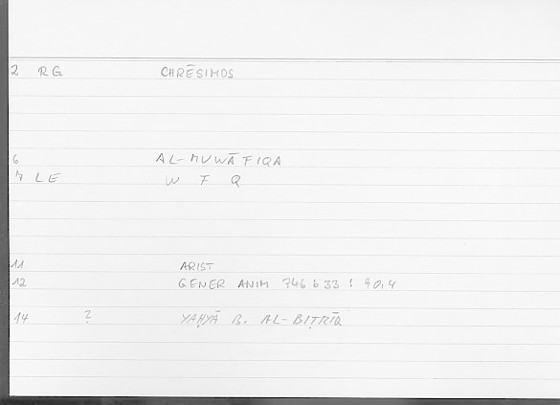 2 RG CHRĒSIMOS
6 AL-MUWĀFIQA
7 LE W F Q
11 ARIST
12 GENER ANIM 746 b 33 : 90,4
14 ? YAḤYĀ B. AL-BIṬRĪQ